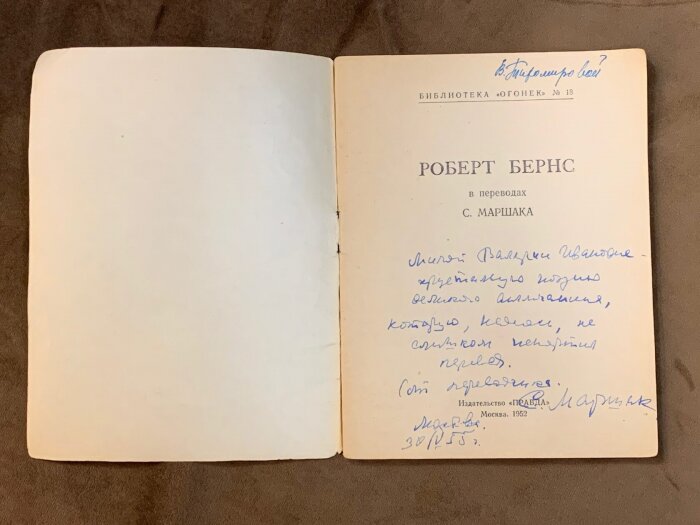 В. Тихомировой
БИБЛИОТЕКА «ОГОНЕК» № 18
РОБЕРТ БЕРНС
в переводах
С. МАРШАКА
Милой Валерии Ивановне -
хрустальную поэзию
великого англичанина,
которую, надеюсь, не
слишком испортил
перевод.
От переводчика.
С. Маршак
Издательство «ПРАВДА»
Москва. 1952
Москва.
30 IV 55 г.